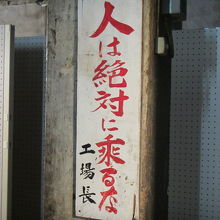 人は絶対に乗るな
工場長